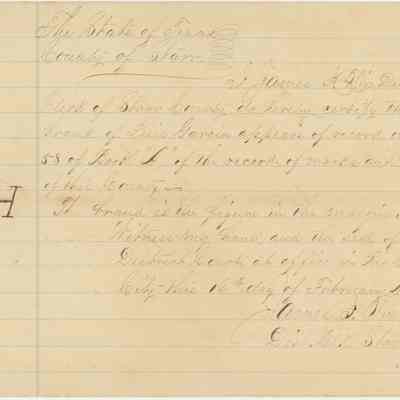 The State of Texas
County of Starr
I, James
Clerk of Starr County do hereby certify that
brand of Luis Garcia appears of record on
58 of Book "L" of the record of marks and
of this County
H
brand is the figure in the margin
Witness my hand, and the seal of
District Court at office in the
City this 16th day of February
James
Starr